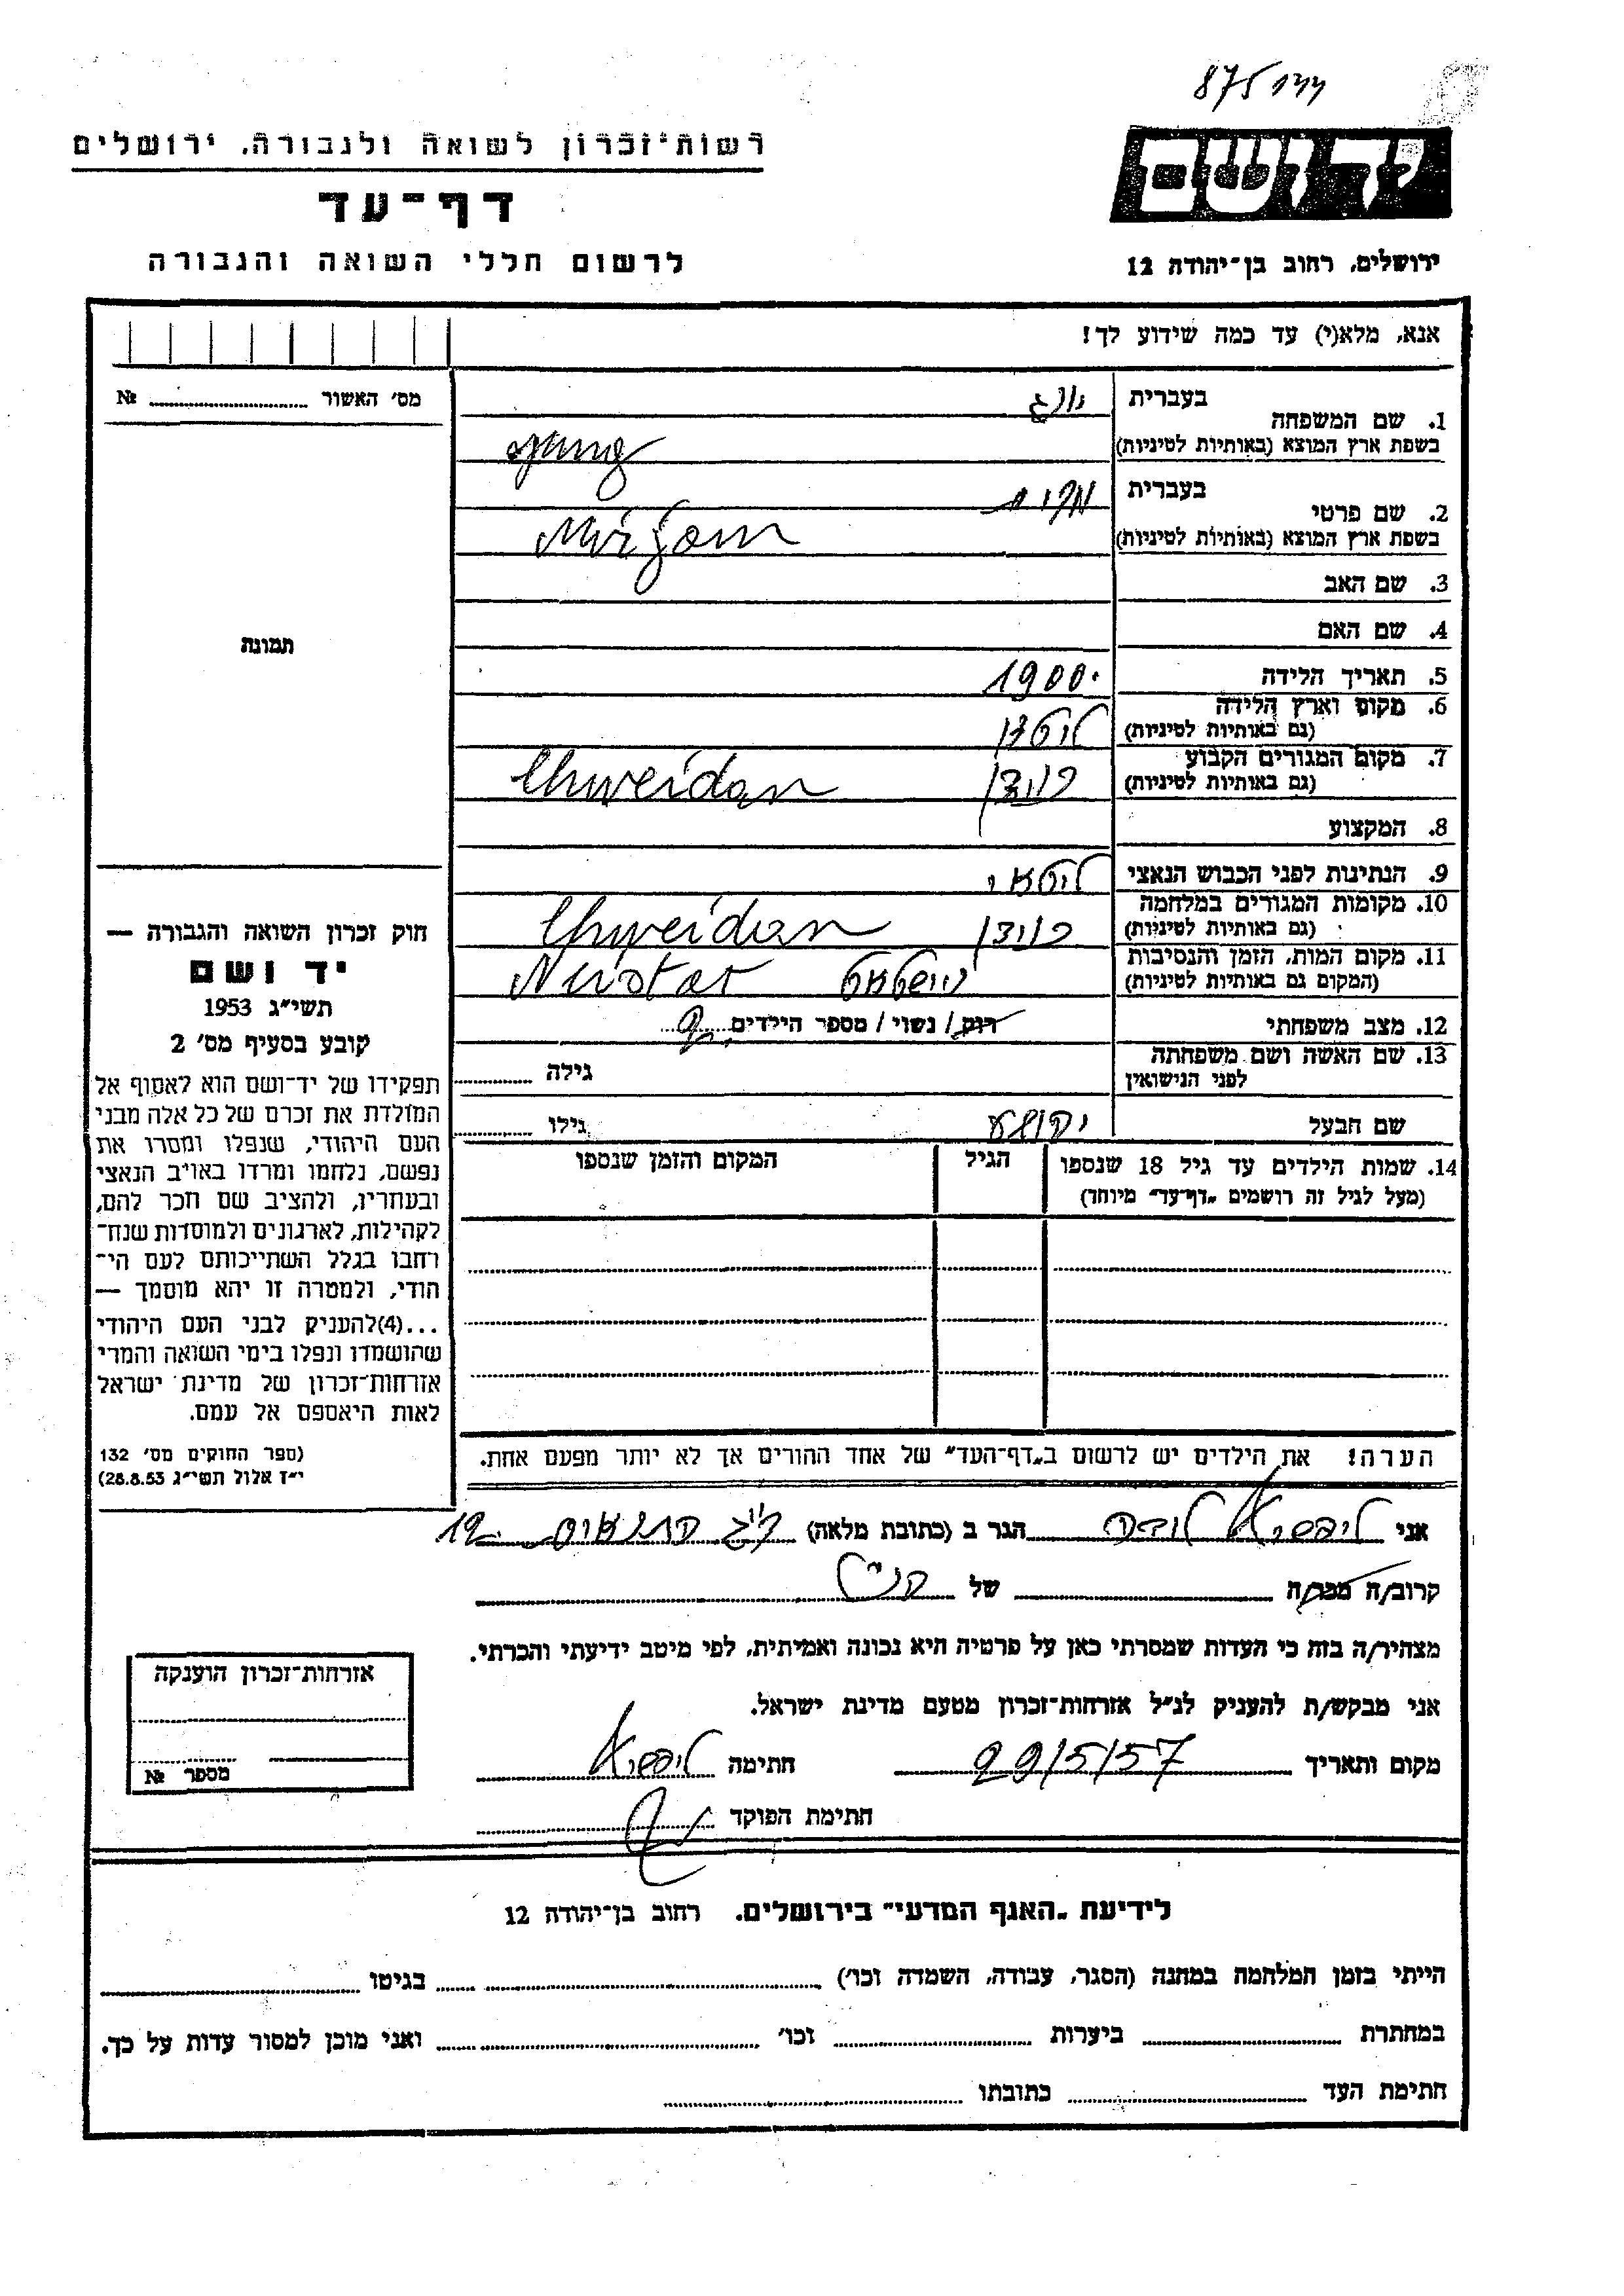 875
רשות־זכרון לשואה ולגבורה, ירושלים
יד ושם
דף־עד
לרשום חללי השואה והגבורה
ירושלים, רחוב בן־יהודה 12
אנא, מלא(י) עד כמה שידוע לך!
מס׳ האשור № 
1. שם המשפחה
בעברית יונג
בשפת ארץ המוצא (באותיות לטיניות) Jung
2. שם פרטי
בעברית מרים
בשפת ארץ המוצא (באותיות לטיניות) Mirjam
3. שם האב
4. שם האם
תמונה
5. תאריך הלידה 1900
6. מקום וארץ הלידה
(גם באותיות לטיניות)
7. מקום המגורים הקבוע
(גם באותיות לטיניות) Chweidan
8. המקצוע
9. הנתינות לפני הכבוש הנאצי ליטאי
10. מקומות המגורים במלחמה
(גם באותיות לטיניות) Chweidan
11. מקום המות, הזמן והנסיבות
(המקום גם באותיות לטיניות) נוישטאט Neistat
12. מצב משפחתי רוק / נשוי / מספר הילדים 2
13. שם האשה ושם משפחתה
לפני הנישואין
גילה
שם הבעל יהושע גילו
14. שמות הילדים עד גיל 18 שנספו
(מעל לגיל זה רושמים „דף־עד״ מיוחד)
הגיל
המקום והזמן שנספו
חוק זכרון השואה והגבורה —
יד ושם
תשי״ג 1953
קובע בסעיף מס׳ 2
תפקידו של יד־ושם הוא לאסוף אל
המולדת את זכרם של כל אלה מבני
העם היהודי, שנפלו ומסרו את
נפשם, נלחמו ומרדו באויב הנאצי
ובעוזריו, ולהציב שם וזכר להם,
לקהילות, לארגונים ולמוסדות שנח־
רבו בגלל השתייכותם לעם הי־
הודי, ולמטרה זו יהא מוסמך —
...(4)להעניק לבני העם היהודי
שהושמדו ונפלו בימי השואה והמרי
אזרחות־זכרון של מדינת ישראל
לאות היאספם אל עמם.
(ספר החוקים מס׳ 132
י״ז אלול תשי״ג 28.8.53)
הערה! את הילדים יש לרשום ב„דף־העד״ של אחד ההורים אך לא יותר מפעם אחת.
אני הגר ב (כתובת מלאה) 12
קרוב/ה מכר/ה של הנ״ל
מצהיר/ה בזה כי העדות שמסרתי כאן על פרטיה היא נכונה ואמיתית, לפי מיטב ידיעתי והכרתי.
אני מבקש/ת להעניק לנ״ל אזרחות־זכרון מטעם מדינת ישראל.
מקום ותאריך 29/5/57 חתימה
חתימת הפוקד
אזרחות־זכרון הוענקה
מספר №
לידיעת „האגף המדעי״ בירושלים. רחוב בן־יהודה 12
הייתי בזמן המלחמה במחנה (הסגר, עבודה, השמדה וכו׳) בגיטו
במחתרת ביערות וכו׳ ואני מוכן למסור עדות על כך.
חתימת העד כתובתו